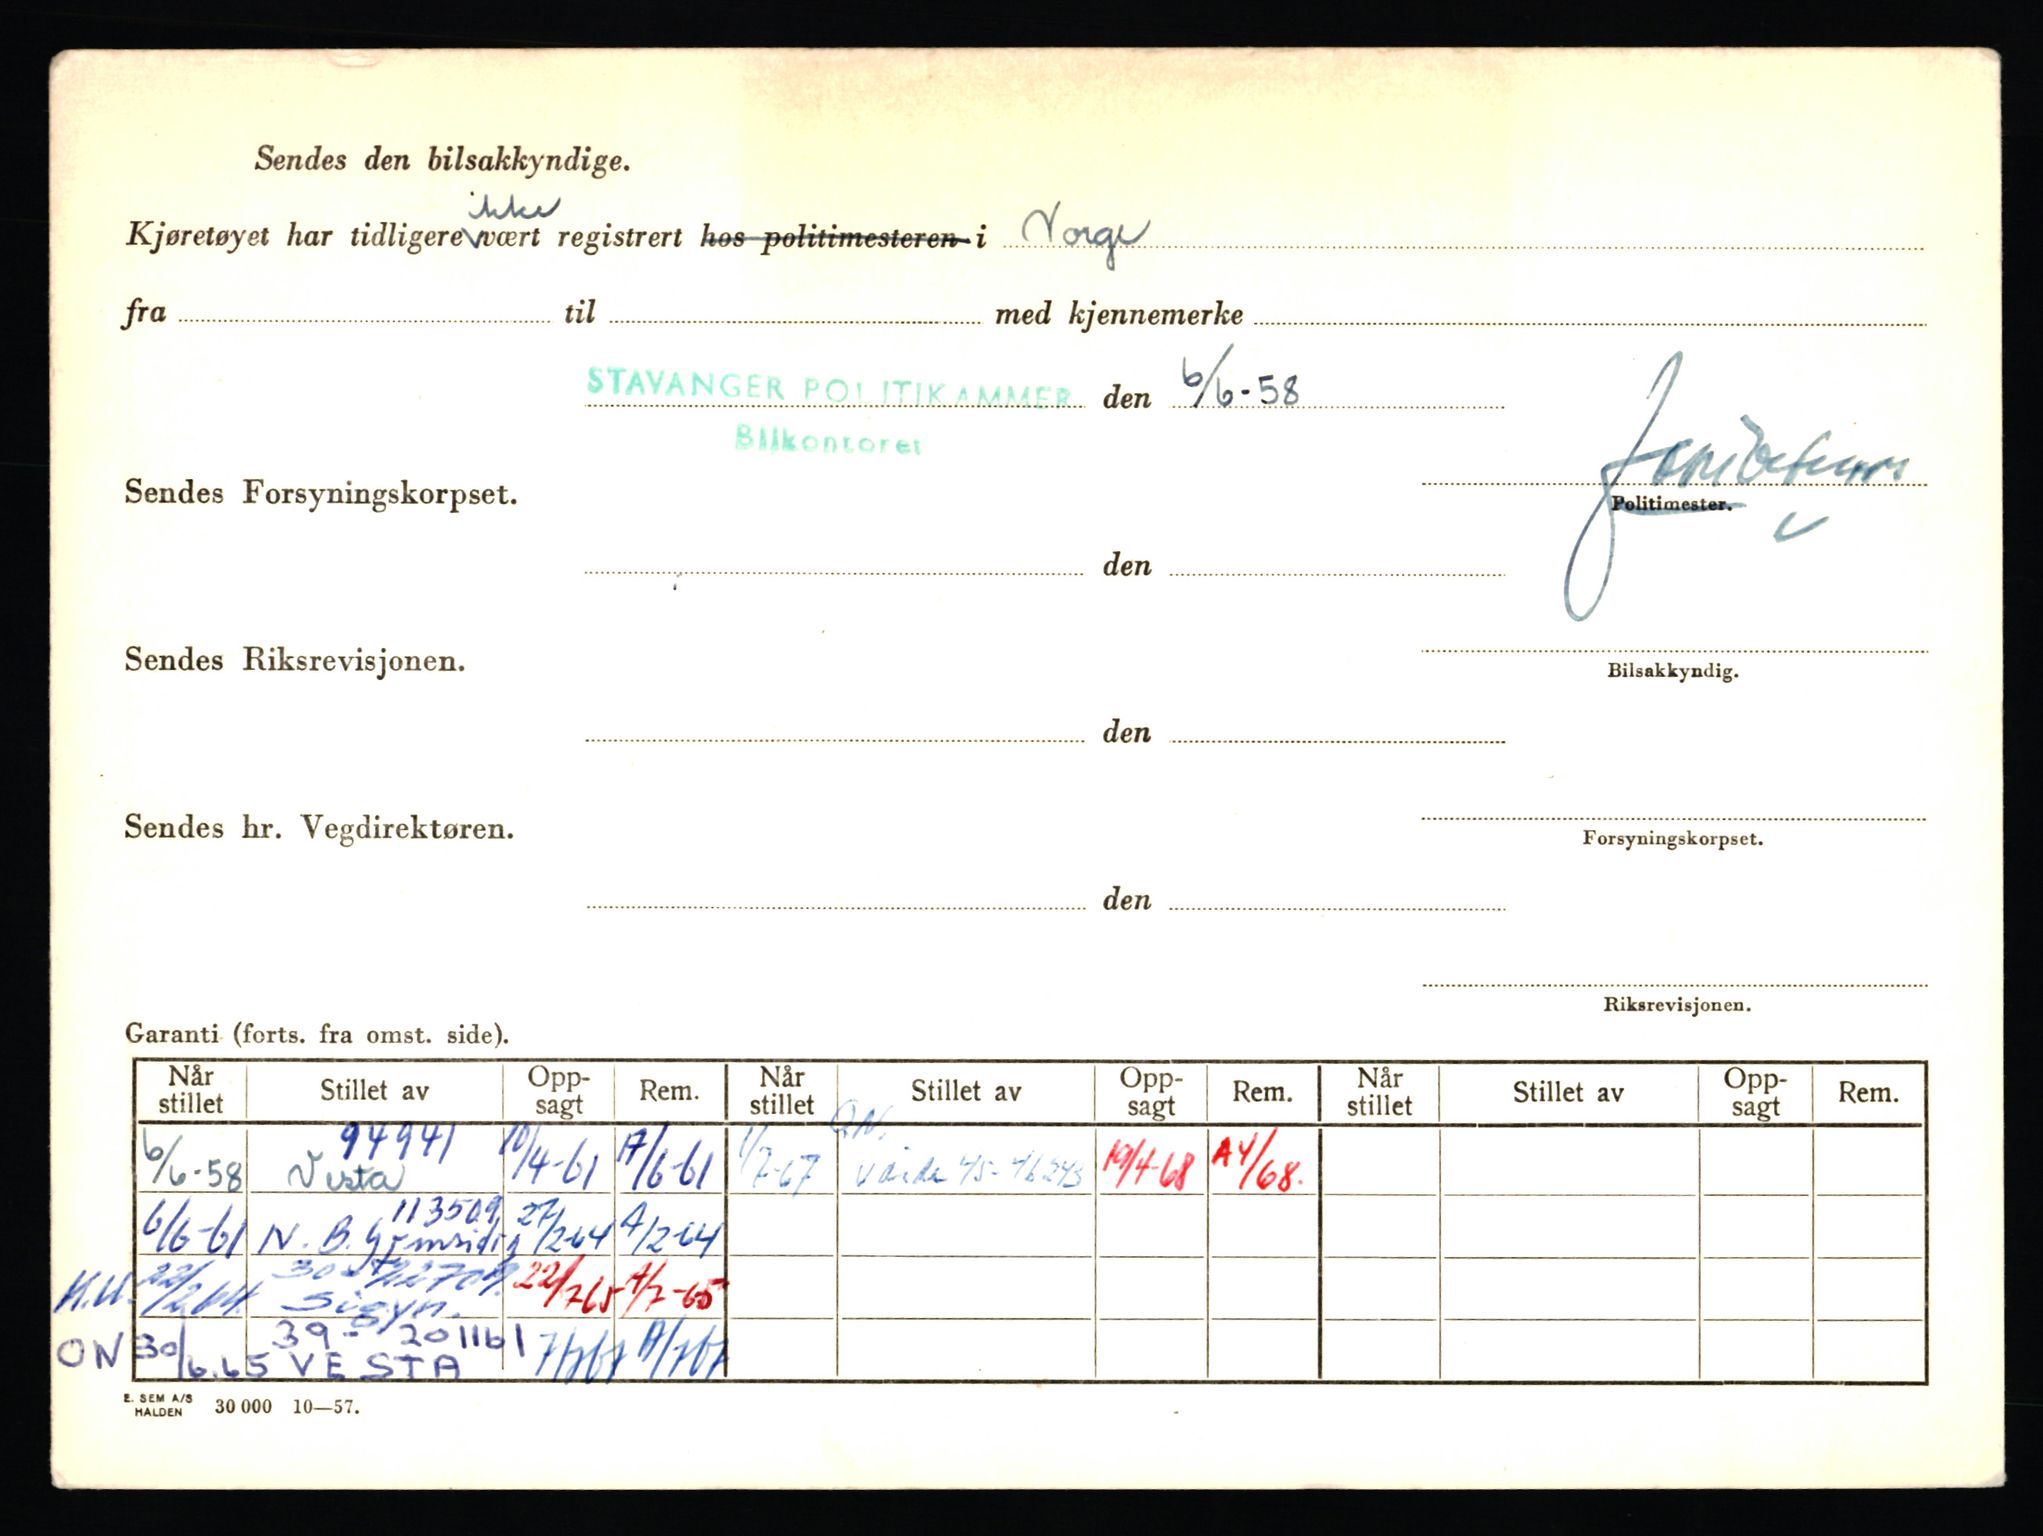 Sendes den bilsakkyndige.
ikke
Kjøretøyet har tidligere vært registrert hos politimesteren i Norge
fra til med kjennemerke
STAVANGER POLITIKAMMER den 6/6-58
Bilkontoret
Sendes Forsyningskorpset.
Politimester.
den
Sendes Riksrevisjonen.
Bilsakkyndig.
den
Sendes hr. Vegdirektøren.
Forsyningskorpset.
den
Riksrevisjonen.
Garanti (forts. fra omst. side).
Når stillet Stillet av Opp-sagt Rem. Når stillet Stillet av Opp-sagt Rem. Når stillet Stillet av Opp-sagt Rem.
6/6-58 94941 Vesta 10/4-61 17/6-61 1/7-67 19/4-68 A4/68.
6/6-61 113509 N. B. 27/2-64 A/2-64
H.U. 22/2 64. Sigyn. 22/7 65 A/7-65
ON 30/6.65 39- 201161 VESTA 7/7 67 A/7 67
E. SEM A/S
HALDEN 30 000 10—57.